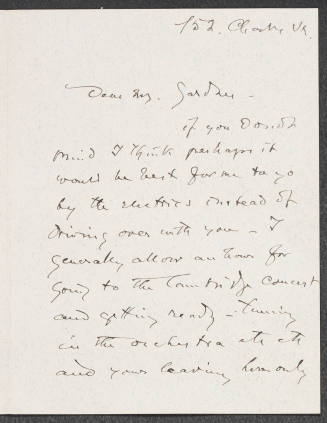 152. Charles St.
Dear Mrs. Gardner -
if you don't
mind I think perhaps it
would be best for me to go
by the electrics instead of
driving over with you - I
generally allow an hour for
going to the Cambridge concert
and getting ready - tuning
in the orchestra etc etc
and your leaving here only